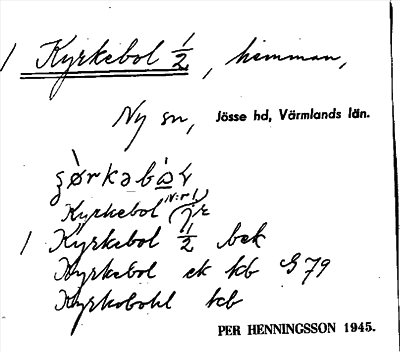 1 Kyrkebol 1/2, hemman,
Ny sn, Jösse hd, Värmlands län.
Kyrkebol (N:r 1)
1 Kyrkebol 1/2 bek
Kyrkebol ek kb 79
Kyrkobohl kb
PER HENNINGSSON 1945.